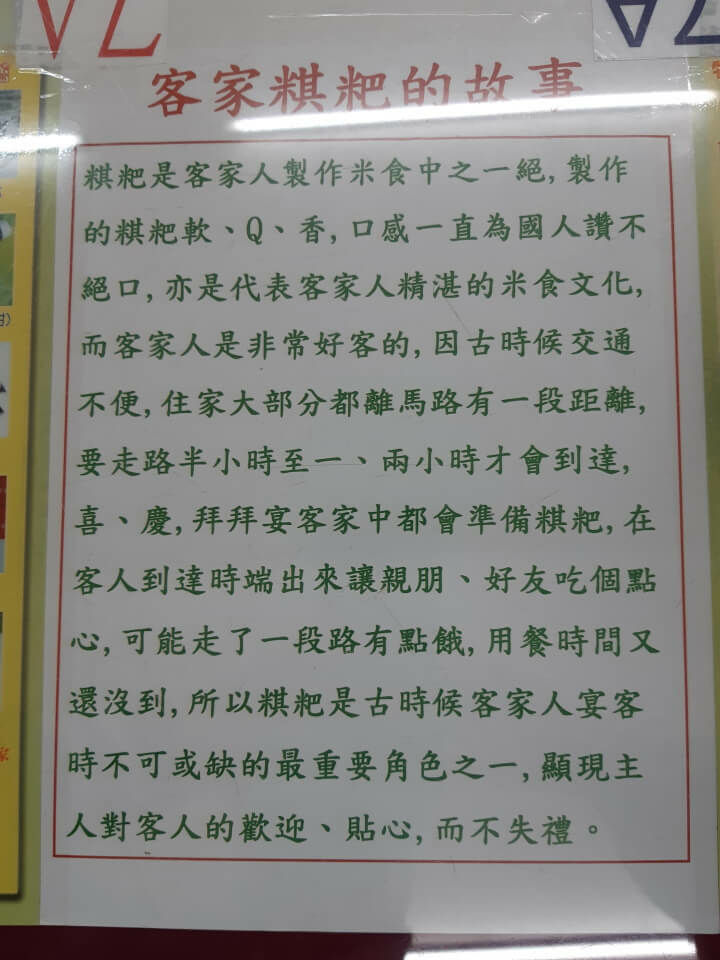 客家粸粑的故事
粸粑是客家人製作米食中之一絕,製作
的粸粑軟、Q、香,口感一直為國人讚不
絕口,亦是代表客家人精湛的米食文化,
而客家人是非常好客的,因古時候交通
不便,住家大部分都離馬路有一段距離,
要走路半小時至一、兩小時才會到達,
喜、慶,拜拜宴客家中都會準備粸粑,在
客人到達時端出來讓親朋、好友吃個點
心,可能走了一段路有點餓,用餐時間又
還沒到,所以粸粑是古時候客家人宴客
時不可或缺的最重要角色之一,顯現主
人對客人的歡迎、貼心,而不失禮。